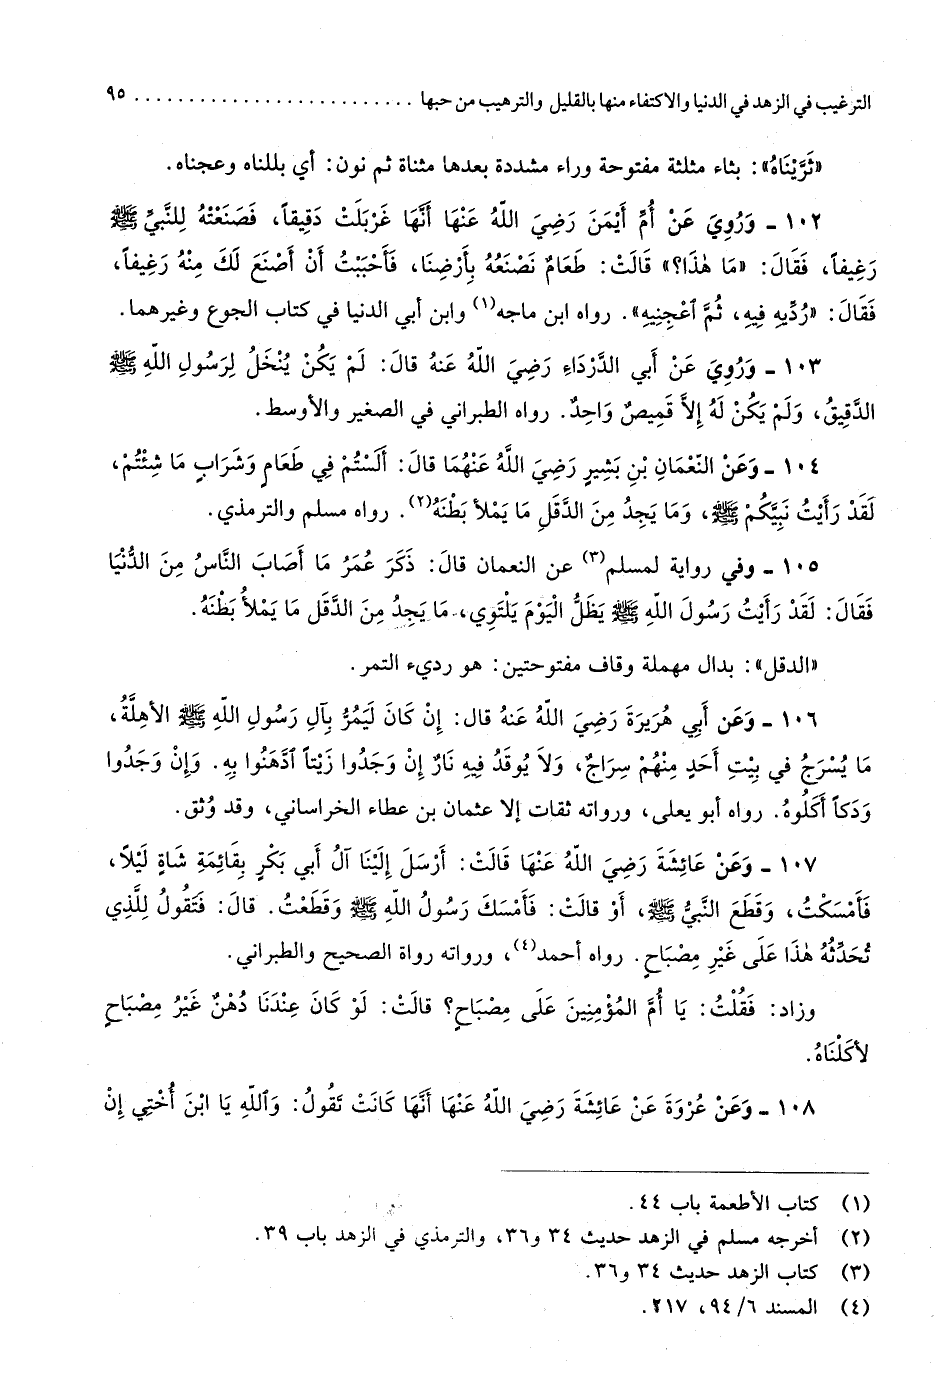 الترغيب في الزهد في الدنيا والاكتفاء منها بالقليل والترهيب من حبها .......................... ٩٥
«ثَرَّيْنَاهُ»: بثاء مثلثة مفتوحة وراء مشددة بعدها مثناة ثم نون: أي بللناه وعجناه.
١٠٢ - وَرُوِيَ عَنْ أُمِّ أَيْمَنَ رَضِيَ اللَّهُ عَنْهَا أَنَّهَا غَرْبَلَتْ دَقِيقاً، فَصَنَعَتْهُ لِلنَّبِيِّ ﷺ
رَغِيفاً، فَقَالَ: «مَا هٰذَا؟» قَالَتْ: طَعَامٌ نَصْنَعُهُ بِأَرْضِنَا، فَأَحْبَبْتُ أَنْ أَصْنَعَ لَكَ مِنْهُ رَغِيفاً،
فَقَالَ: «رُدِّيهِ فِيهِ، ثُمَّ ٱعْجِنِيهِ». رواه ابن ماجه(١) وابن أبي الدنيا في كتاب الجوع وغيرهما.
١٠٣ - وَرُوِيَ عَنْ أَبي الدَّرْدَاءِ رَضِيَ اللَّهُ عَنهُ قالَ: لَمْ يَكُنْ يُنْخَلُ لِرَسُولِ اللَّهِ ﷺ
الدَّقِيقُ، وَلَمْ يَكُنْ لَهُ إِلاَّ قَمِيصٌ وَاحِدٌ. رواه الطبراني في الصغير والأوسط.
١٠٤ - وَعَنْ النّعْمَانِ بْنِ بَشِيرٍ رَضِيَ اللَّهُ عَنْهُمَا قالَ: أَلَسْتُمْ فِي طَعَامٍ وَشَرَابٍ مَا شِئْتُمْ،
لَقَدْ رَأَيْتُ نَبِيَّكُمْ ﷺ، وَمَا يَجِدُ مِنَ الدَّقَلِ مَا يَمْلأ بَطْنَهُ(٢). رواه مسلم والترمذي.
١٠٥ - وفي رواية لمسلم(٣) عن النعمان قالَ: ذَكَرَ عُمَرُ مَا أَصَابَ النَّاسُ مِنَ الدُّنْيَا
فَقَالَ: لَقَدْ رَأَيْتُ رَسُولَ اللَّهِ ﷺ يَظَلُّ الْيَوْمَ يَلْتَوِي، مَا يَجِدُ مِنَ الدَّقَلِ مَا يَمْلأُ بَطْنَهُ.
«الدقل»: بدال مهملة وقاف مفتوحتين: هو رديء التمر.
١٠٦ - وَعَن أَبِي هُرَيرَةَ رَضِيَ اللَّهُ عَنهُ قال: إِنْ كَانَ لَيَمُرُّ بِآلِ رَسُولِ اللَّهِ ﷺ الأهِلَّةُ،
مَا يُسْرَجُ في بِيْتِ أَحَدٍ مِنْهُمْ سِرَاجٌ، وَلاَ يُوقَدُ فِيهِ نَارٌ إِنْ وَجَدُوا زَيْتاً ٱدَّهَنُوا بِهِ. وَإِنْ وَجَدُوا
وَدَكاً أَكَلُوهُ. رواه أبو يعلى، ورواته ثقات إلا عثمان بن عطاء الخراساني، وقد وُثق.
١٠٧ - وَعَنْ عَائِشَةَ رَضِيَ اللَّهُ عَنْهَا قَالَتْ: أَرْسَلَ إِلَيْنَا آلُ أَبي بَكْرٍ بِقَائِمَةِ شَاةٍ لَيْلاً،
فَأَمْسَكْتُ، وَقَطَعَ النَّبِيُّ ﷺ، أَوْ قالَتْ: فَأَمْسَكَ رَسُولُ اللَّهِ ﷺ وَقَطَعْتُ. قالَ: فَتَقُولُ لِلَّذِي
تُحَدِّثُهُ هٰذَا عَلَى غَيْرِ مِصْبَاحٍ. رواه أحمد(٤)، ورواته رواة الصحيح والطبراني.
وزاد: فَقُلْتُ: يَا أُمَّ المُؤْمِنِينَ عَلَى مِصْبَاحٍ؟ قالَتْ: لَوْ كَانَ عِنْدَنَا دُهْنٌ غَيْرُ مِصْبَاحٍ
لأكَلْنَاهُ.
١٠٨ - وَعَنْ عُرْوَةَ عَنْ عَائِشَةَ رَضِيَ اللَّهُ عَنْهَا أَنَّهَا كَانَتْ تَقُولُ: وَٱللَّهِ يَا ابْنَ أُخْتِي إِنْ
(١) كتاب الأطعمة باب ٤٤.
(٢) أخرجه مسلم في الزهد حديث ٣٤ و٣٦، والترمذي في الزهد باب ٣٩.
(٣) كتاب الزهد حديث ٣٤ و٣٦.
(٤) المسند ٦/ ٩٤، ٢١٧.